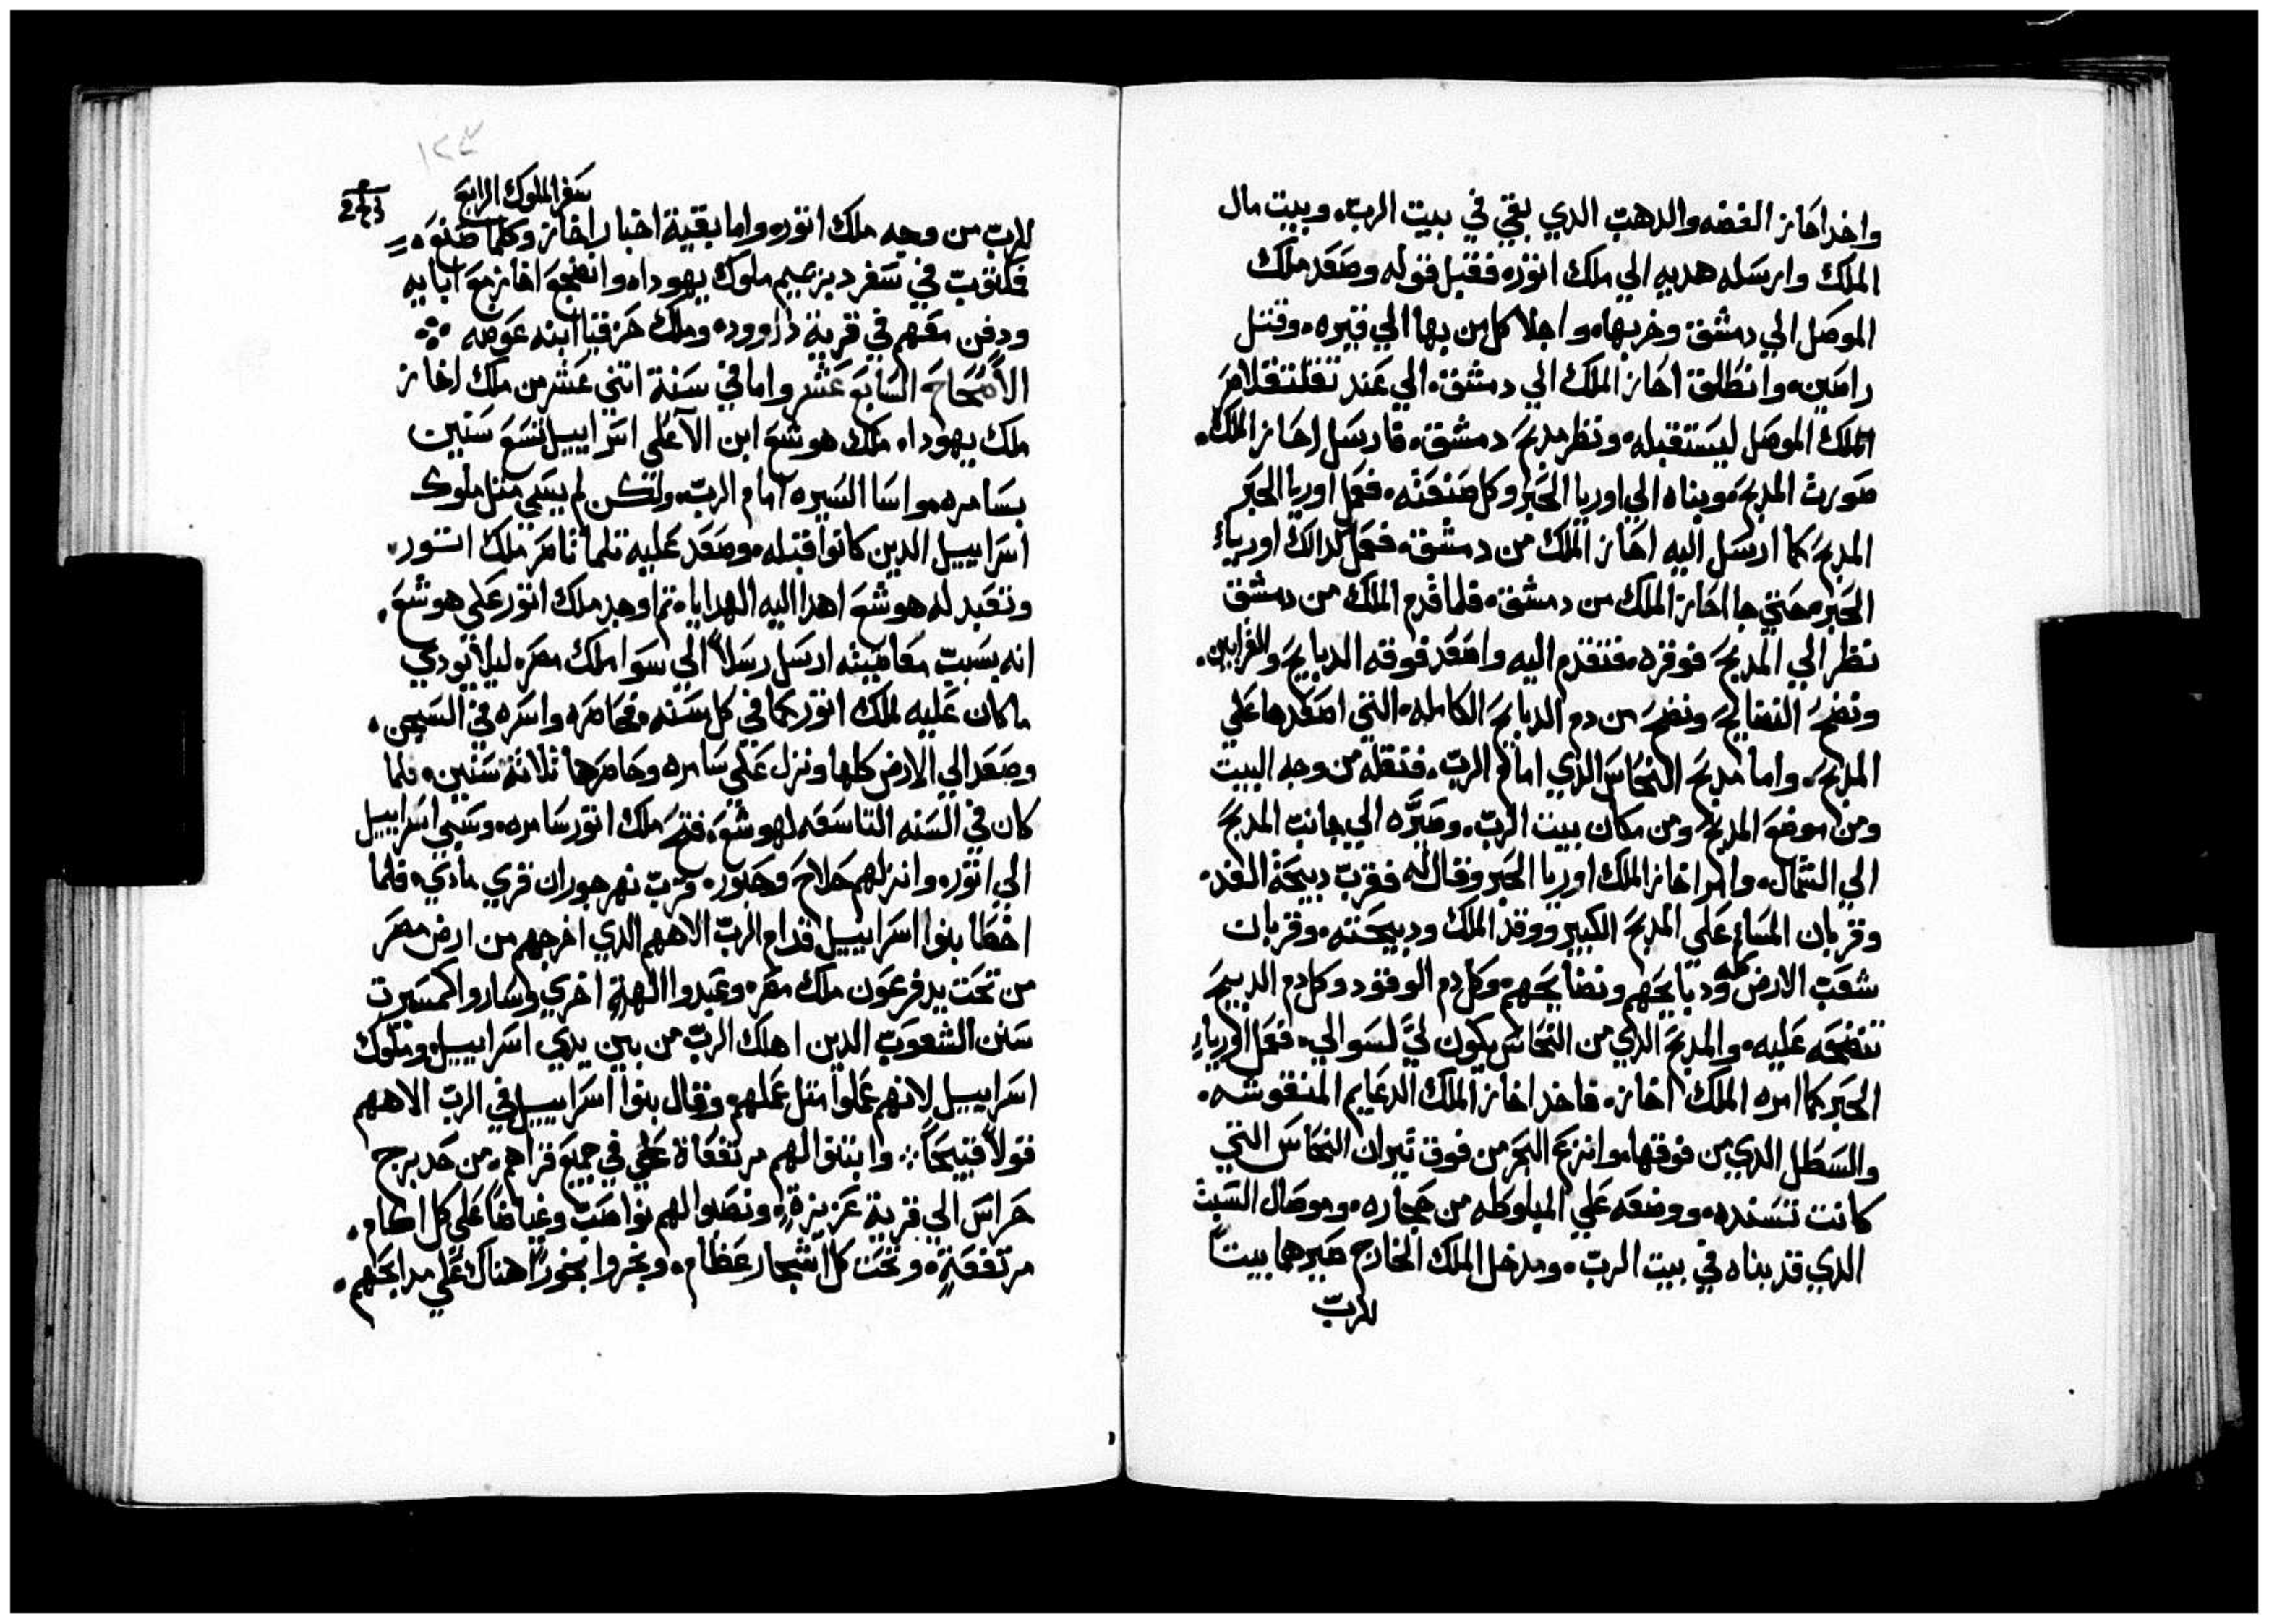 واخد احاز الفضه والدهب الدي بقي في بيت الرب. وبيت مال
الملك وارسله هديه الي ملك اتور. فقبل قوله وصعد ملك
الموصل الي دمشق وخربها. واجلا كل من بها الي قيره. وقتل
راصين. وانطلق احاز الملك الي دمشق. الي عند تغلتفلاصر
الملك الموصل ليستقبله. ونظر مدبح دمشق. فارسل احاز الملك.
صورت المدبح. وبناه الي اوريا الحبر وكل صنعته. فعمل اوريا الحبر
المدبح كما ارسل اليه احاز الملك من دمشق. فعمل كدالك اورياء
الحبر. حتي جا احاز الملك من دمشق. فلما قدم الملك من دمشق
نظر الي المدبح فوقره. فتقدم اليه واصعد فوقه الدبايح والقرابين.
ونضح النضايح ونضح من دم الدبايح الكامله. التي اصعدها علي
المدبح. واما مدبح النحاس الذي امام الرب. فنقله من وجه البيت
ومن موضع المدبح ومن مكان بيت الرب. وصيره الي جانب المدبح
الي الشمال. وامر اخاز الملك اوريا الحبر وقال له فقرب دبيحة الغد.
وقربان المساء علي المدبح الكبير ووقد الملك ودبيحته. وقربان
شعب الارض كله ودبايحهم ونضايحهم. وكل دم الوقود وكل دم الدبيح
تنضحه عليه. والمدبح الدي من النحاس يكون لي لسوالي. ففعل اورياء
الحبر كما امره الملك اخاز. فاخد اخاز الملك الدعايم المنقوشه.
والسطل الدي من فوقها. وانزع البحر من فوق تيران النحاس التي
كانت تسنده. ووضعه علي المبلوطه من حجاره. وموصال السبت
الدي قد بناه في بيت الرب. ومدخل الملك الخارج صيرهما بيتاً
للرب
سفر الملوك الرابع
للرب من وجه ملك اتور. واما بقية اخبار اخاز وكلما صنعوه.
فكتوب في سفر دبرصيم ملوك يهودا. وانضجع اخاز مع ابايه
ودفن معهم في قرية داوود. وملك حزقيا ابنه عوضه
الأصحاح السابع عشر واما في سنة اتني عشر من ملك اخاز
ملك يهودا. ملك هوشع ابن الآعلي اسراييل تسع سنين
بسامره. واسا السيره امام الرب. ولكن لم يسي متل ملوك
اسراييل الدين كانوا قبله. وصعد عليه تلما ناصر ملك اتور.
وتعبد له هوشع اهدا اليه الهدايا. تم اوجد ملك اتور علي هوشع.
انه بسبب معاصيته ارسل رسلاً الي سوا ملك مصر. ليلا يودي
ما كان عليه لملك اتور كما في كل سنه. فحاصره واسره في السجن.
وصعد الي الارض كلها ونزل علي سامره وحاصرها تلاتة سنين. فلما
كان في السنه التاسعه لهوشع. فتح ملك اتور سامره. وسبي اسراييل
الي اتور. وانزلهم حلاح وحبور. قرب نهر جوران قري مادي. فلما
اخطا بنوا اسراييل قدام الرب الاههم الدي اخرجهم من ارض مصر
من تحت يد فرعون ملك مصر. وعبدوا الهة اخري وساروا كمسيرت
سنن الشعوب الدين اهلك الرب من بين يدي اسراييل. وملوك
اسراييل لانهم عملوا متل عملهم. وقال بنوا اسراييل في الرب الاههم
قولاً قبيحاً. وابتنوا لهم مرتفعاة علي في جميع قراهم. من حد برج
حراس الي قرية عزيزة. ونصبوا لهم نواصب وغياضاً علي كل اكام.
مرتفعة. وتحت كل اشجار عظام. وبخروا بخوراً هناك علي مدابحهم.